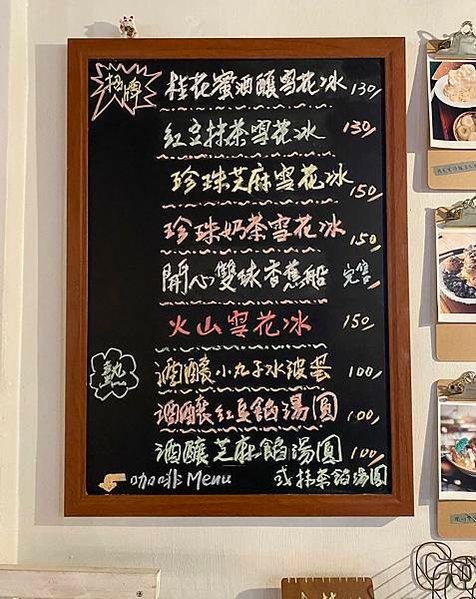 招牌 桂花蜜酒釀雪花冰 130
紅豆抹茶雪花冰 130
珍珠芝麻雪花冰 150
珍珠奶茶雪花冰 150
開心雙球香蕉船 完售
火山雪花冰 150
熱 酒釀小丸子水波蛋 100
酒釀紅豆餡湯圓 100
酒釀芝麻餡湯圓 100
咖啡Menu 或抹茶餡湯圓